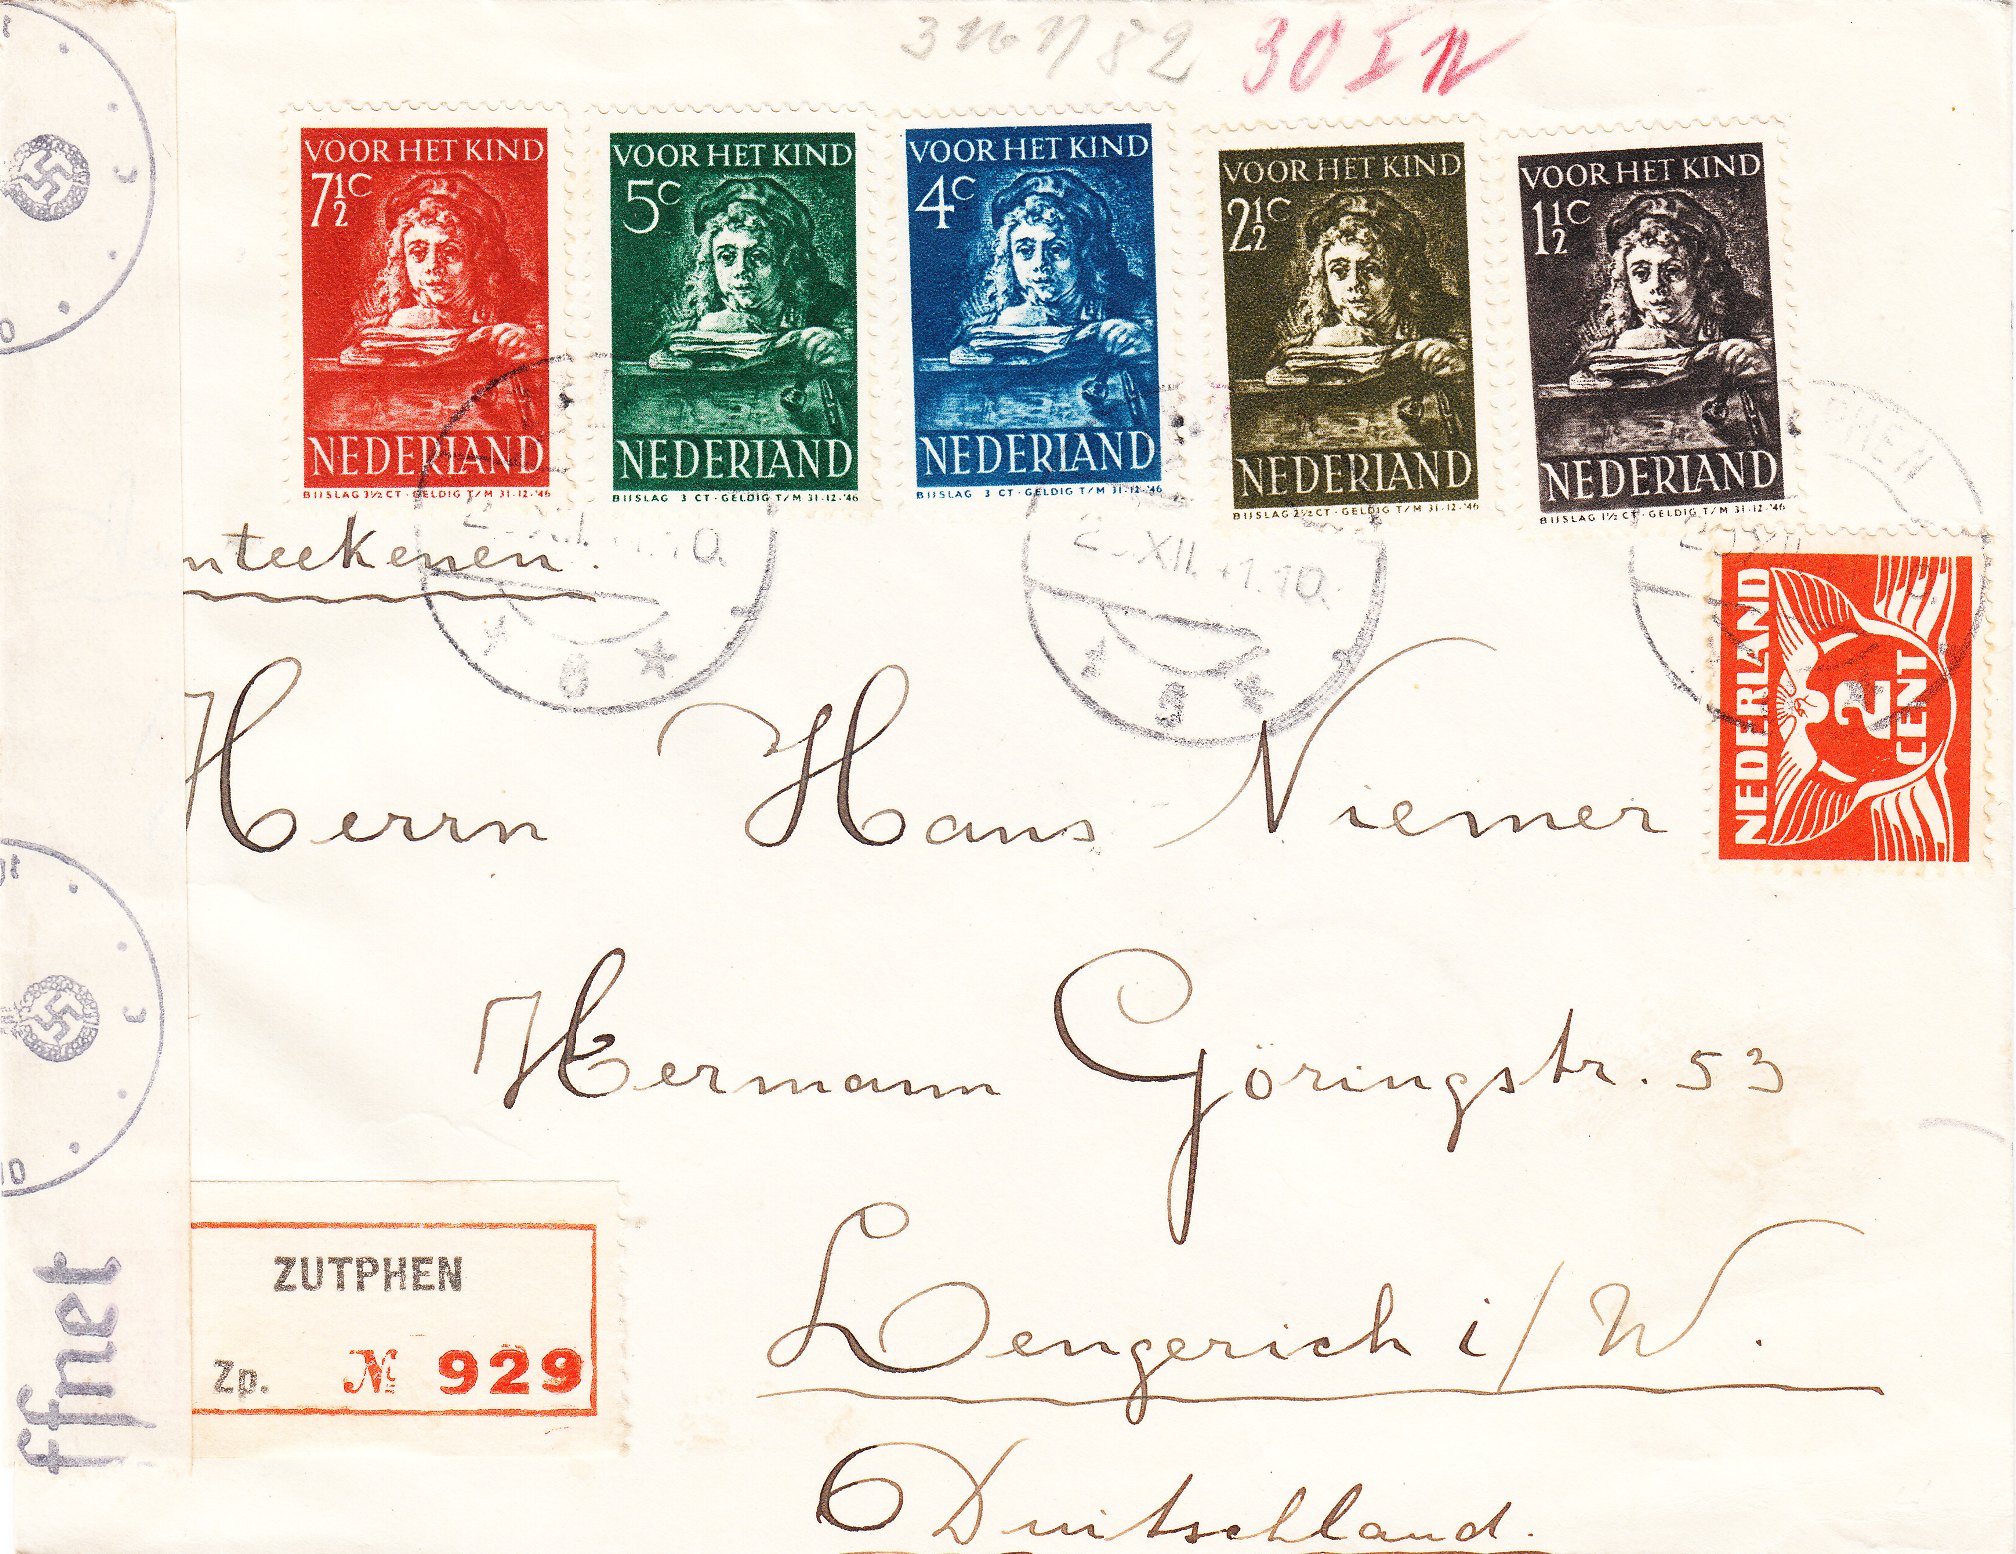 30
VOOR HET KIND
7½C
NEDERLAND
BIJSLAG 3½ CT · GELDIG T/M 31·12·'46
VOOR HET KIND
5C
NEDERLAND
BIJSLAG 3 CT · GELDIG T/M 31·12·'46
VOOR HET KIND
4C
NEDERLAND
BIJSLAG 3 CT · GELDIG T/M 31·12·'46
VOOR HET KIND
2½C
NEDERLAND
BIJSLAG 2½ CT · GELDIG T/M 31·12·'46
VOOR HET KIND
1½C
NEDERLAND
BIJSLAG 1½ CT · GELDIG T/M 31·12·'46
NEDERLAND
2
CENT
PHEN
XII
10.
XII. 41.10.
nteekenen.
Herrn Hans Niemer
Hermann Göringstr. 53
Lengerich i/W.
Duitschland.
c
c
ffnet
ZUTPHEN
Zp. № 929